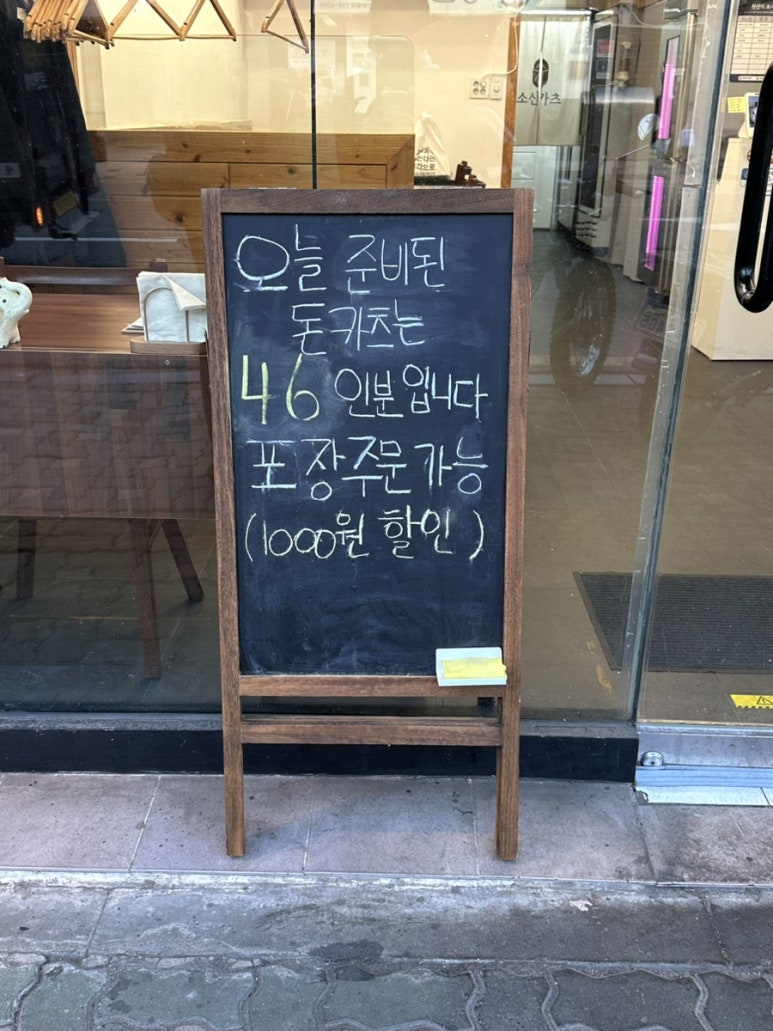 소신카츠
오늘 준비된
돈카츠는
46 인분입니다
포장주문가능
(1000원 할인)